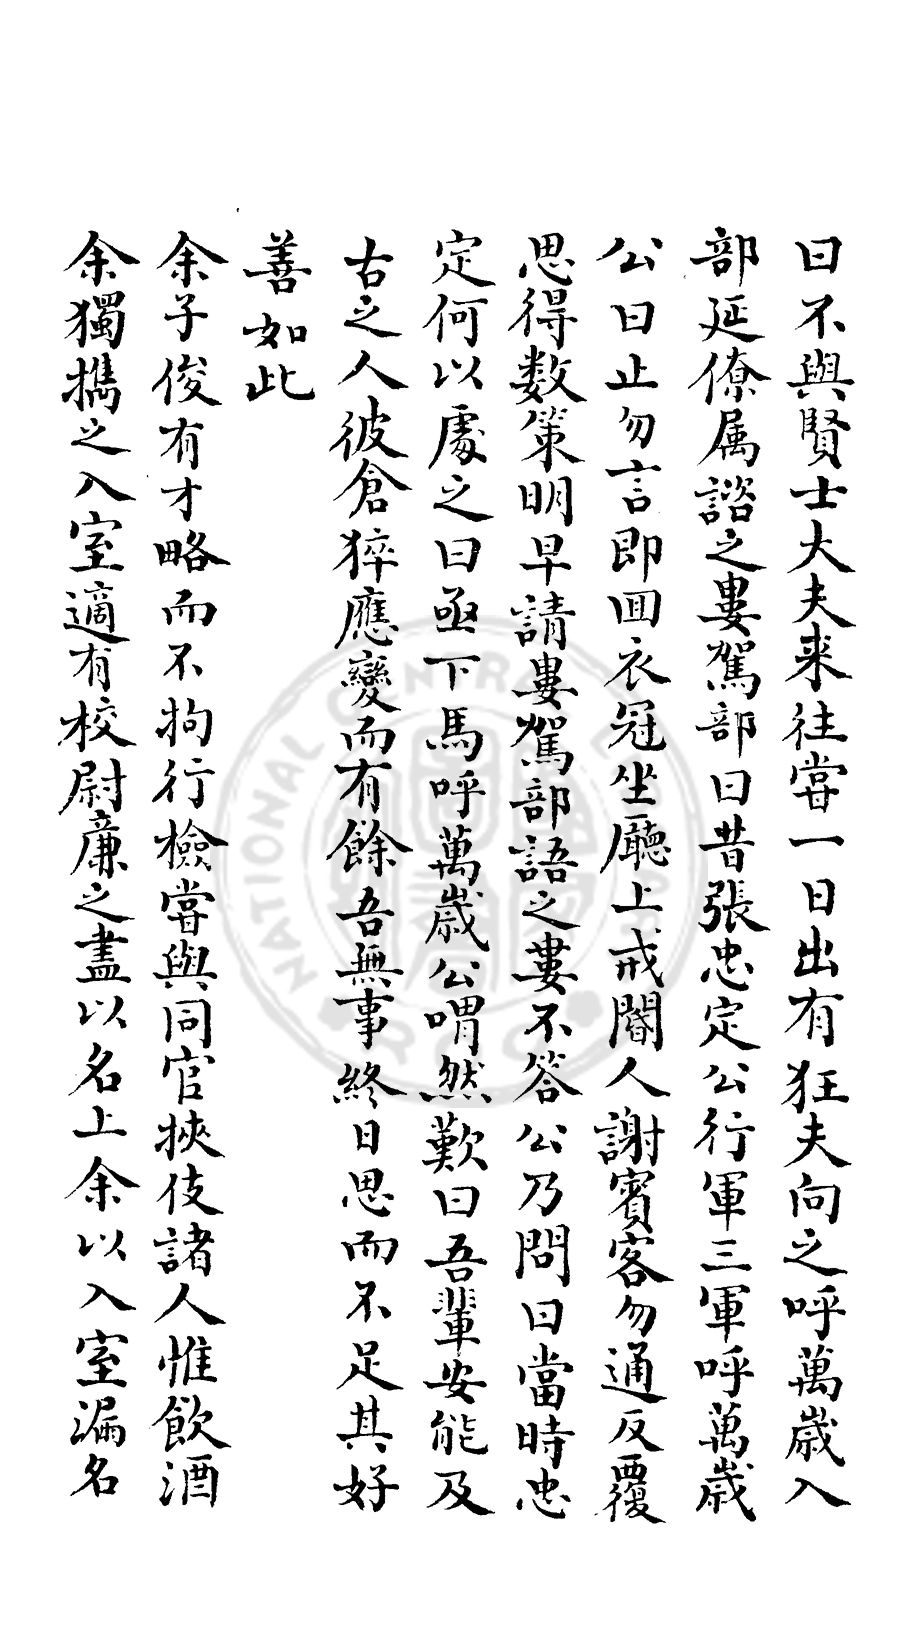 日不與賢士大夫来往甞一日出有狂夫向之呼萬歲入
部延僚属諮之婁駕部曰昔張忠定公行軍三軍呼萬歲
公曰止勿言即囬衣冠坐廳上戒閽人謝賓客勿通反覆
思得数策明早請婁駕部語之婁不答公乃問曰當時忠
定何以處之曰亟下馬呼萬歲公喟然歎曰吾輩安能及
古之人彼倉猝應變而有餘吾無事終日思而不足其好
善如此
余子俊有才略而不拘行檢甞與同官挾伎諸人惟飲酒
余獨携之入室適有校尉廉之盡以名上余以入室漏名
NATIONAL CENTRAL LIBRARY
R.O.C